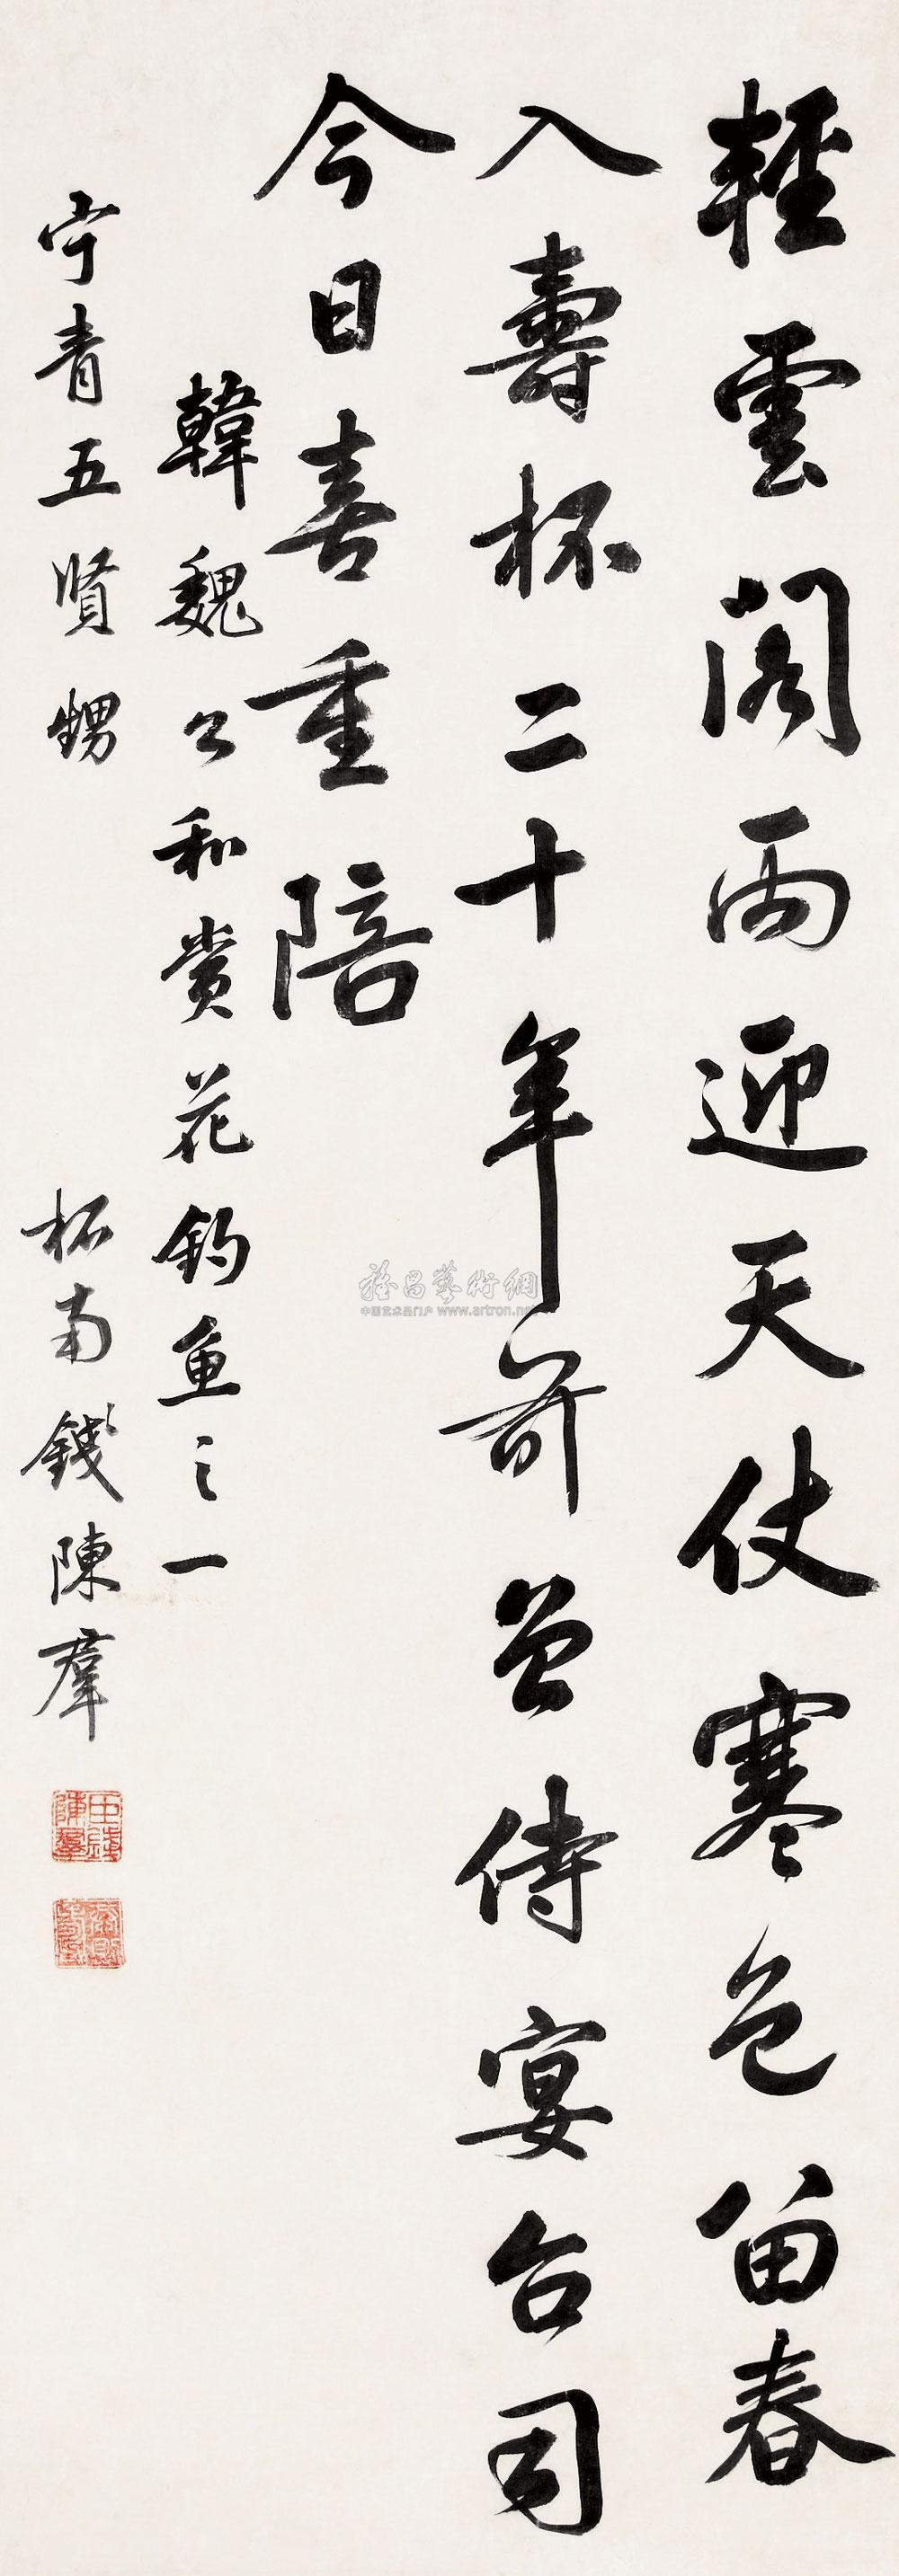 輕雲閣雨迎天仗寒色留春
入壽杯二十年前曾侍宴台司
今日喜重陪
韓魏公和賞花釣魚之一
宁青五賢甥
柘南錢陳羣
臣錢陳羣
雅昌藝術網
中国艺术品门户 www.artron.net